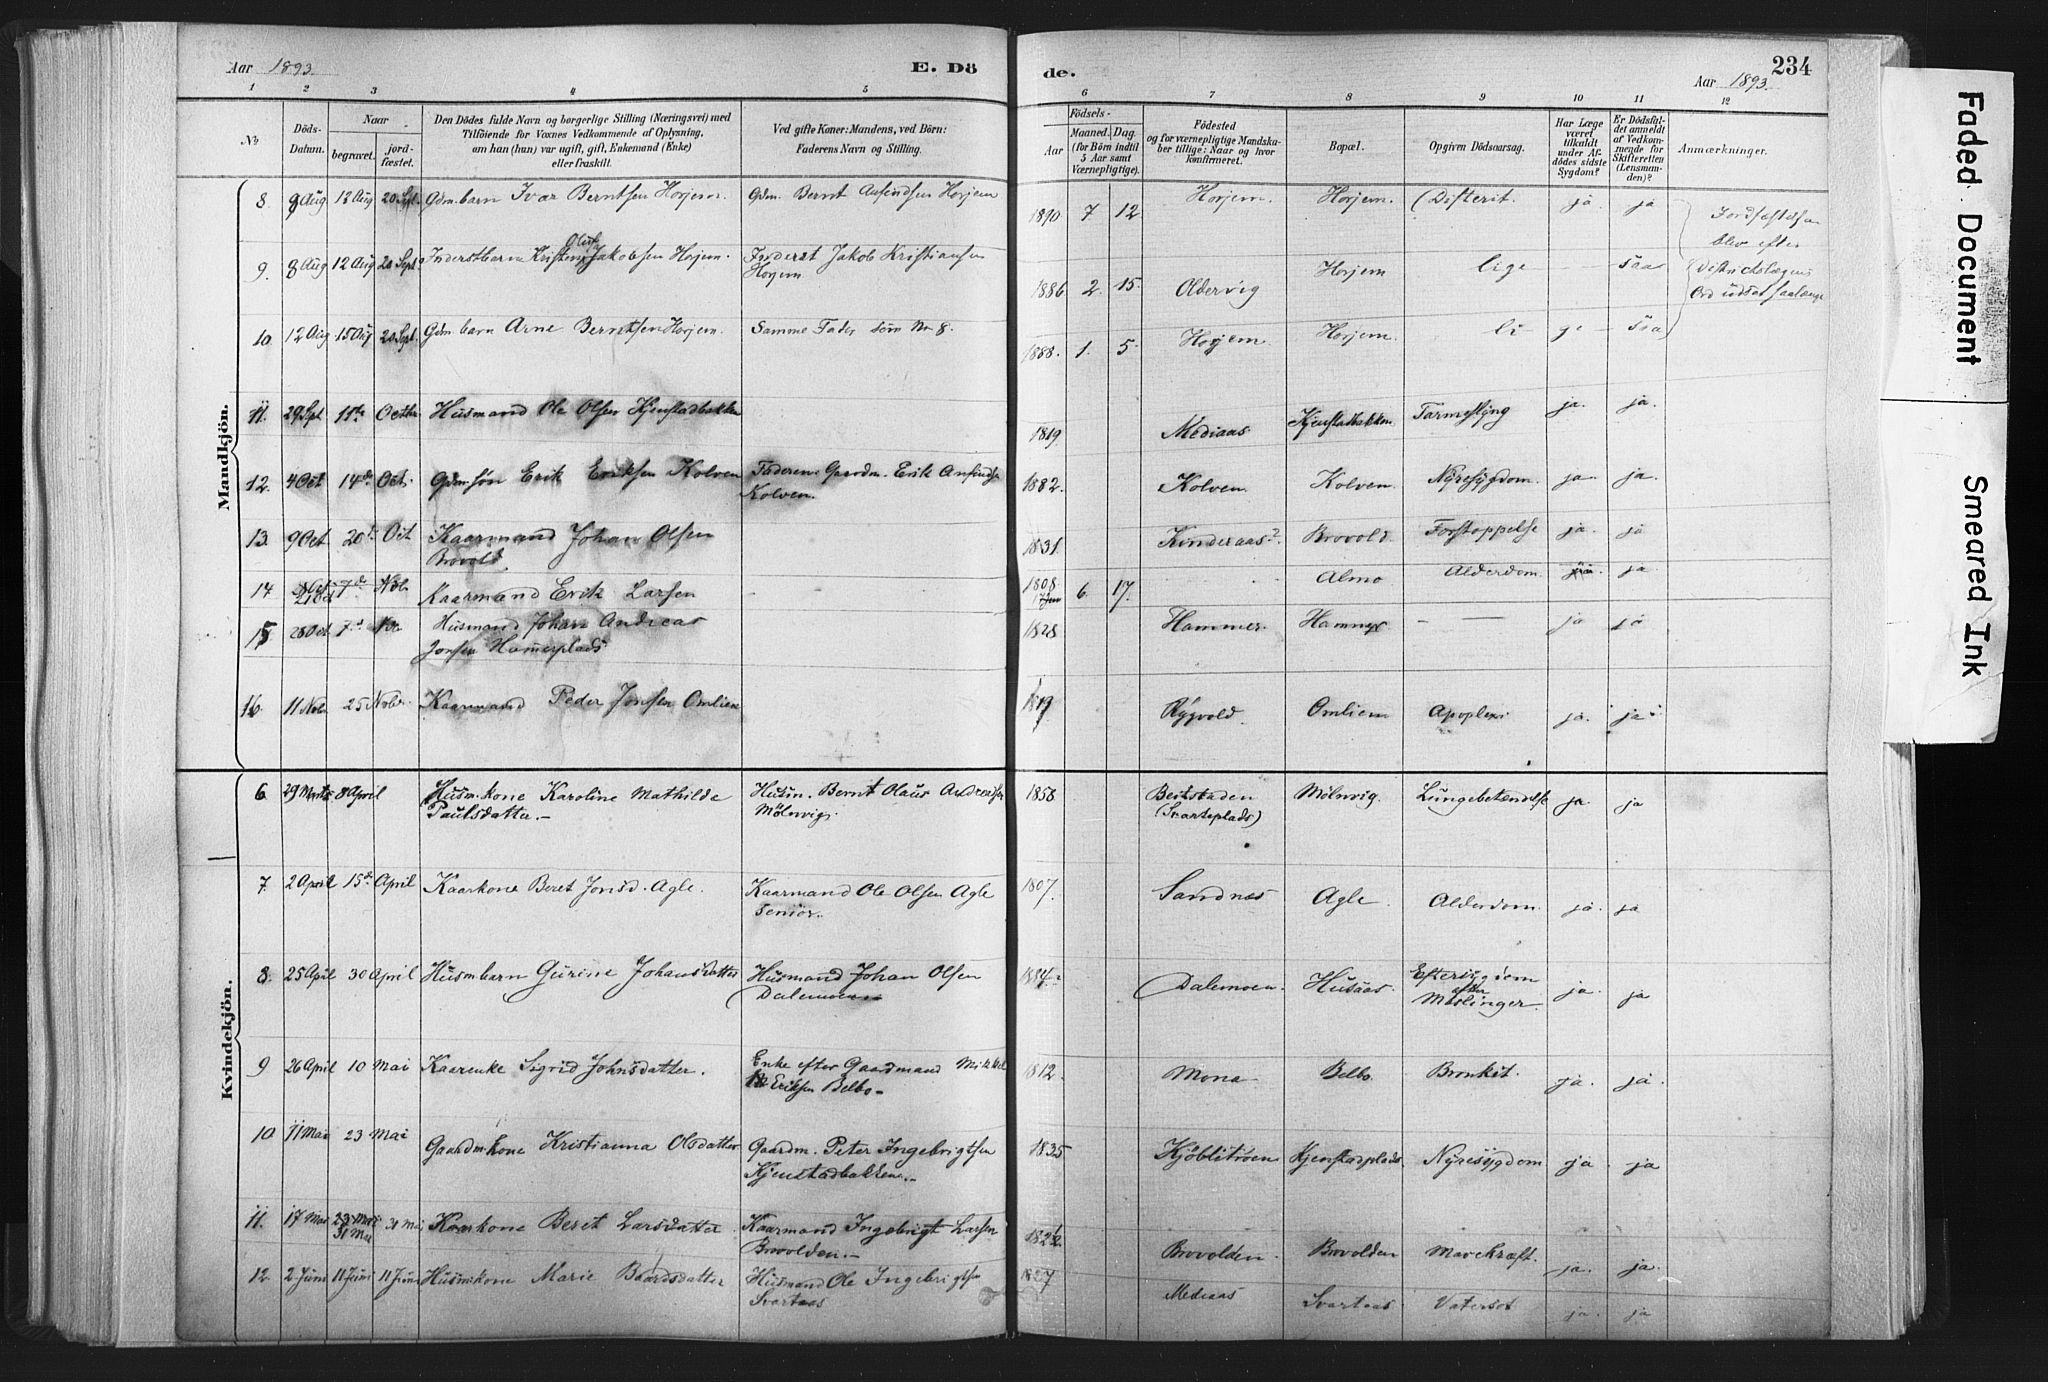 Aar 1893.
E. Dö
de.
Aar 1893.
234
1 2 3 4 5 6 7 8 9 10 11 12
No
Döds-Datum.
Naar
begravet.
jord-fæstet.
Den Dödes fulde Navn og borgerlige Stilling (Næringsvei) med
Tilföiende for Voxnes Vedkommende af Oplysning,
om han (hun) var ugift, gift, Enkemand (Enke)
eller fraskilt.
Ved gifte Koner: Mandens, ved Börn:
Faderens Navn og Stilling.
Födsels-
Aar
Maaned. Dag.
(for Börn indtil
5 Aar samt
Værnepligtige).
Födested
og for værnepligtige Mandska-
ber tillige: Naar og hvor
konfirmeret.
Bopæl.
Opgiven Dödsaarsag.
Har Læge
været
tilkaldt
under Af-
dödes sidste
Sygdom?
Er Dödsfal-
det anmeldt
af Vedkom-
mende for
Skifteretten
(Lensman-
den)?
Anmærkninger.
Mandkjön.
8. 9 Aug 12 Aug 20 Sept. Gdm. barn Ivar Berntsen Horjem. Gdm. Bernt Anfindsen Horjem 1890 7 12 Horjem. Horjem. Difterit. ja ja
Jordfæstelsen
blev efter
Districtslægens
Ord udsat saalænge
9. 8 Aug 12 Aug 20 Sept. Inderstbarn Kristen Oluf Jakobsen Horjem. Inderst Jakob Kristiansen
Horjem 1886 2. 15. Oldervig Horjem lige — saa
10. 12 Aug 15 Aug 20 Sept. Gdm. barn Arne Berntsen Horjem. Samme Fader som Nr 8. 1888. 1. 5. Horjem. Horjem. li ge — saa
11. 29 Spt 11te Octbr Husmand Ole Olsen Kjenstadbakken 1819 Mediaas Kjenstadbakken Tarmeslyng ja. ja.
12. 4 Oct 14de Oct. Gdmsøn Erik Eriksen Kolven Faderen: Gaardm. Erik Anfinds.
Kolven. 1882. Kolven. Kolven. Nyresygdom. ja. ja.
13. 9 Oct 20de Oct Kaarmand Johan Olsen
Brovold. 1831. Kinderaas? Brovold. Forstoppelse ja. ja
14 21 Oct 7de Nob. Kaarmand Erik Larsen 1808 6. 17. Almo Alderdom. ja
15 28 Oct. 7de Husmand Johan Andreas
Jonsen Hamerplads 1828 Hammer. Hammer — — ja ja
16. 11 Nobr 25 Nobr. Kaarmand Peder Jonsen Omlien 1819 Rygvold. Omliem Apoplexi ja. ja
Kvindekjön.
6 29 Marts 8 April Husm.kone Karoline Mathilde
Paulsdatter. — Husm. Bernt Olaus Andreasen
Mölnvig. 1858 Beitstaden
(Svarteplads) Mölnvig. Lungebetændelse ja. ja
7 2 April 15de April Kaarkone Beret Jonsd. Agle. Kaarmand Ole Olsen Agle
senior. 1807. Sandnæs Agle. Alderdom. ja. ja
8. 25 April 30 April Husm barn Gurine Johansdatter Husmand Johan Olsen
Dalemoen 1884. Dalemoen. Husaas. Eftersygdom
efter
Mæslinger. ja. ja
9 26 April 10 Mai Kaarenke Sigrid Johnsdatter. Enke efter Gaardmand Mikkel
Eriksen Belbo — 1812. Mona Belbo. Bronkit. ja. ja.
10. 11 Mai 23 Mai Gaardm.kone Kristianna Olsdatter Gaardm. Peter Ingebrigtsen
Kjenstadbakken. — 1835 Kjöblitröen Kjenstadplads. Nyresygdom ja ja
11. 17 Mai 23 Mai
31 Mai 31 Mai Kaarkone Beret Larsdatter Kaarmand Ingebrigt Larsen
Brovolden. — Brovolden. Brovolden Mavekræft. ja. ja.
12. 2 Juni 11 Juni 11 Juni Husm.kone Marie Baardsdatter Husmand Ole Ingebrigtsen
Svartaas 1827 Mediaas Svartaas Vatersot ja. ja
Faded Document
Smeared Ink